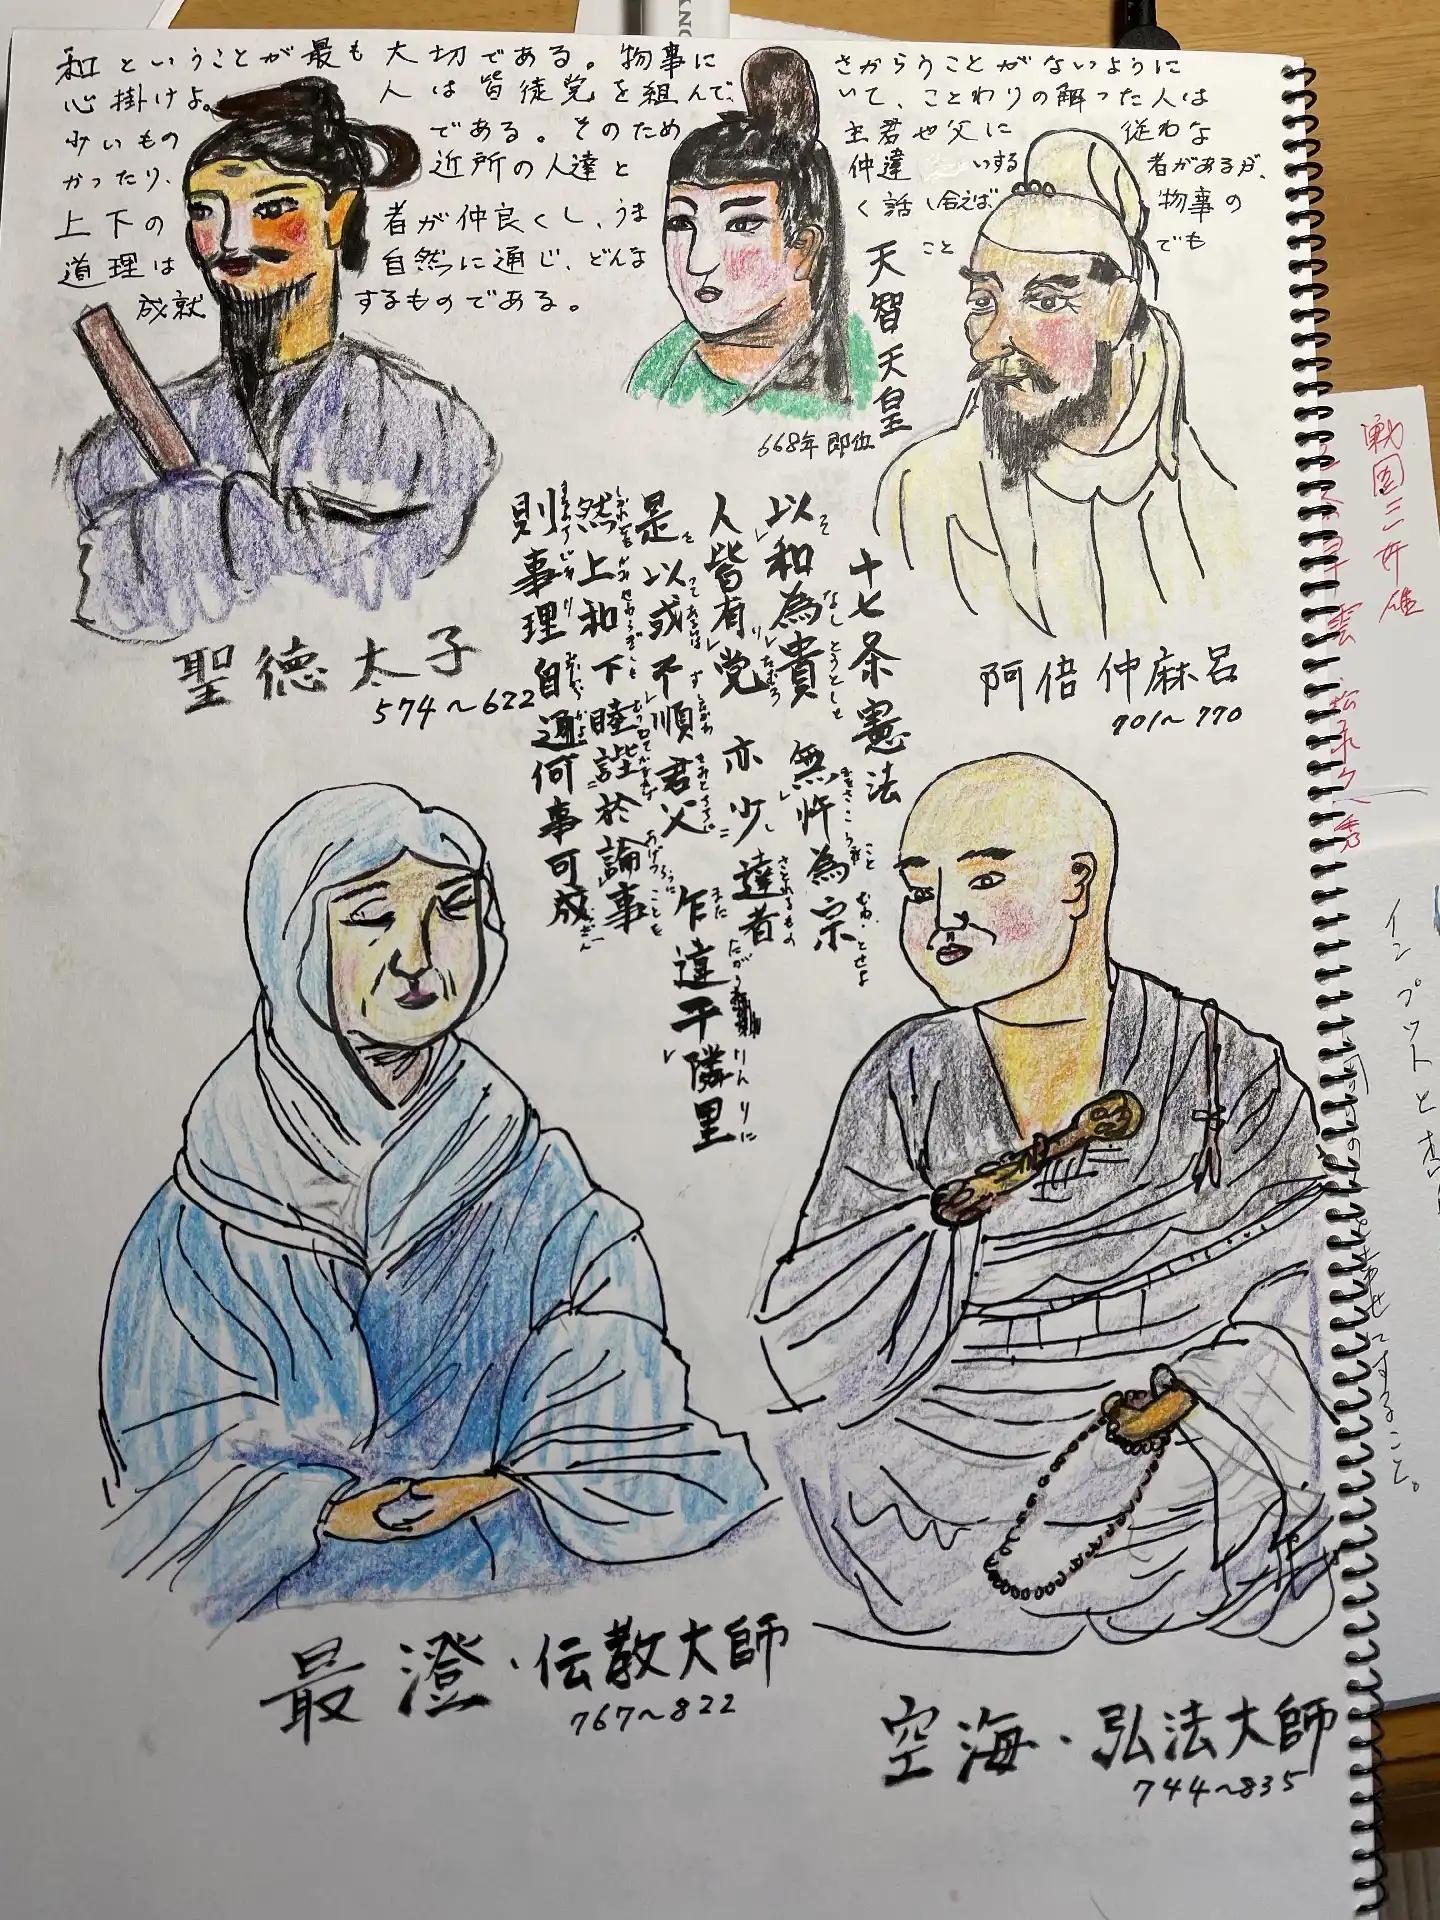 和ということが最も大切である。物事に さからうことがないように
心掛けよ。 人は皆徒党を組んで、 いて、ことわりの解った人は
少いもの である。そのため 主君や父に 従わな
かったり、 近所の人達と 仲違 いする 者があるが、
上下の 者が仲良くし、うま く話し合えば 物事の
道理は 自然に通じ、どんな こと でも
成就 するものである。
天智天皇
668年即位
聖徳太子
574〜622
阿倍仲麻呂
701〜770
十七条憲法
以和為貴 無忤為宗
人皆有党 亦少達者
是以或不順君父 乍違于隣里
然上和下睦 諧於論事
則事理自通 何事可成
最澄・伝教大師
767〜822
空海・弘法大師
744〜835
戦国三奸雄
インプットと
幸せにすること。